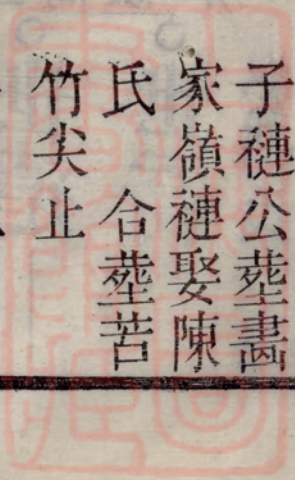 子褳公塟畵
家嶺褳娶陳
氏　合塟苦
竹尖止